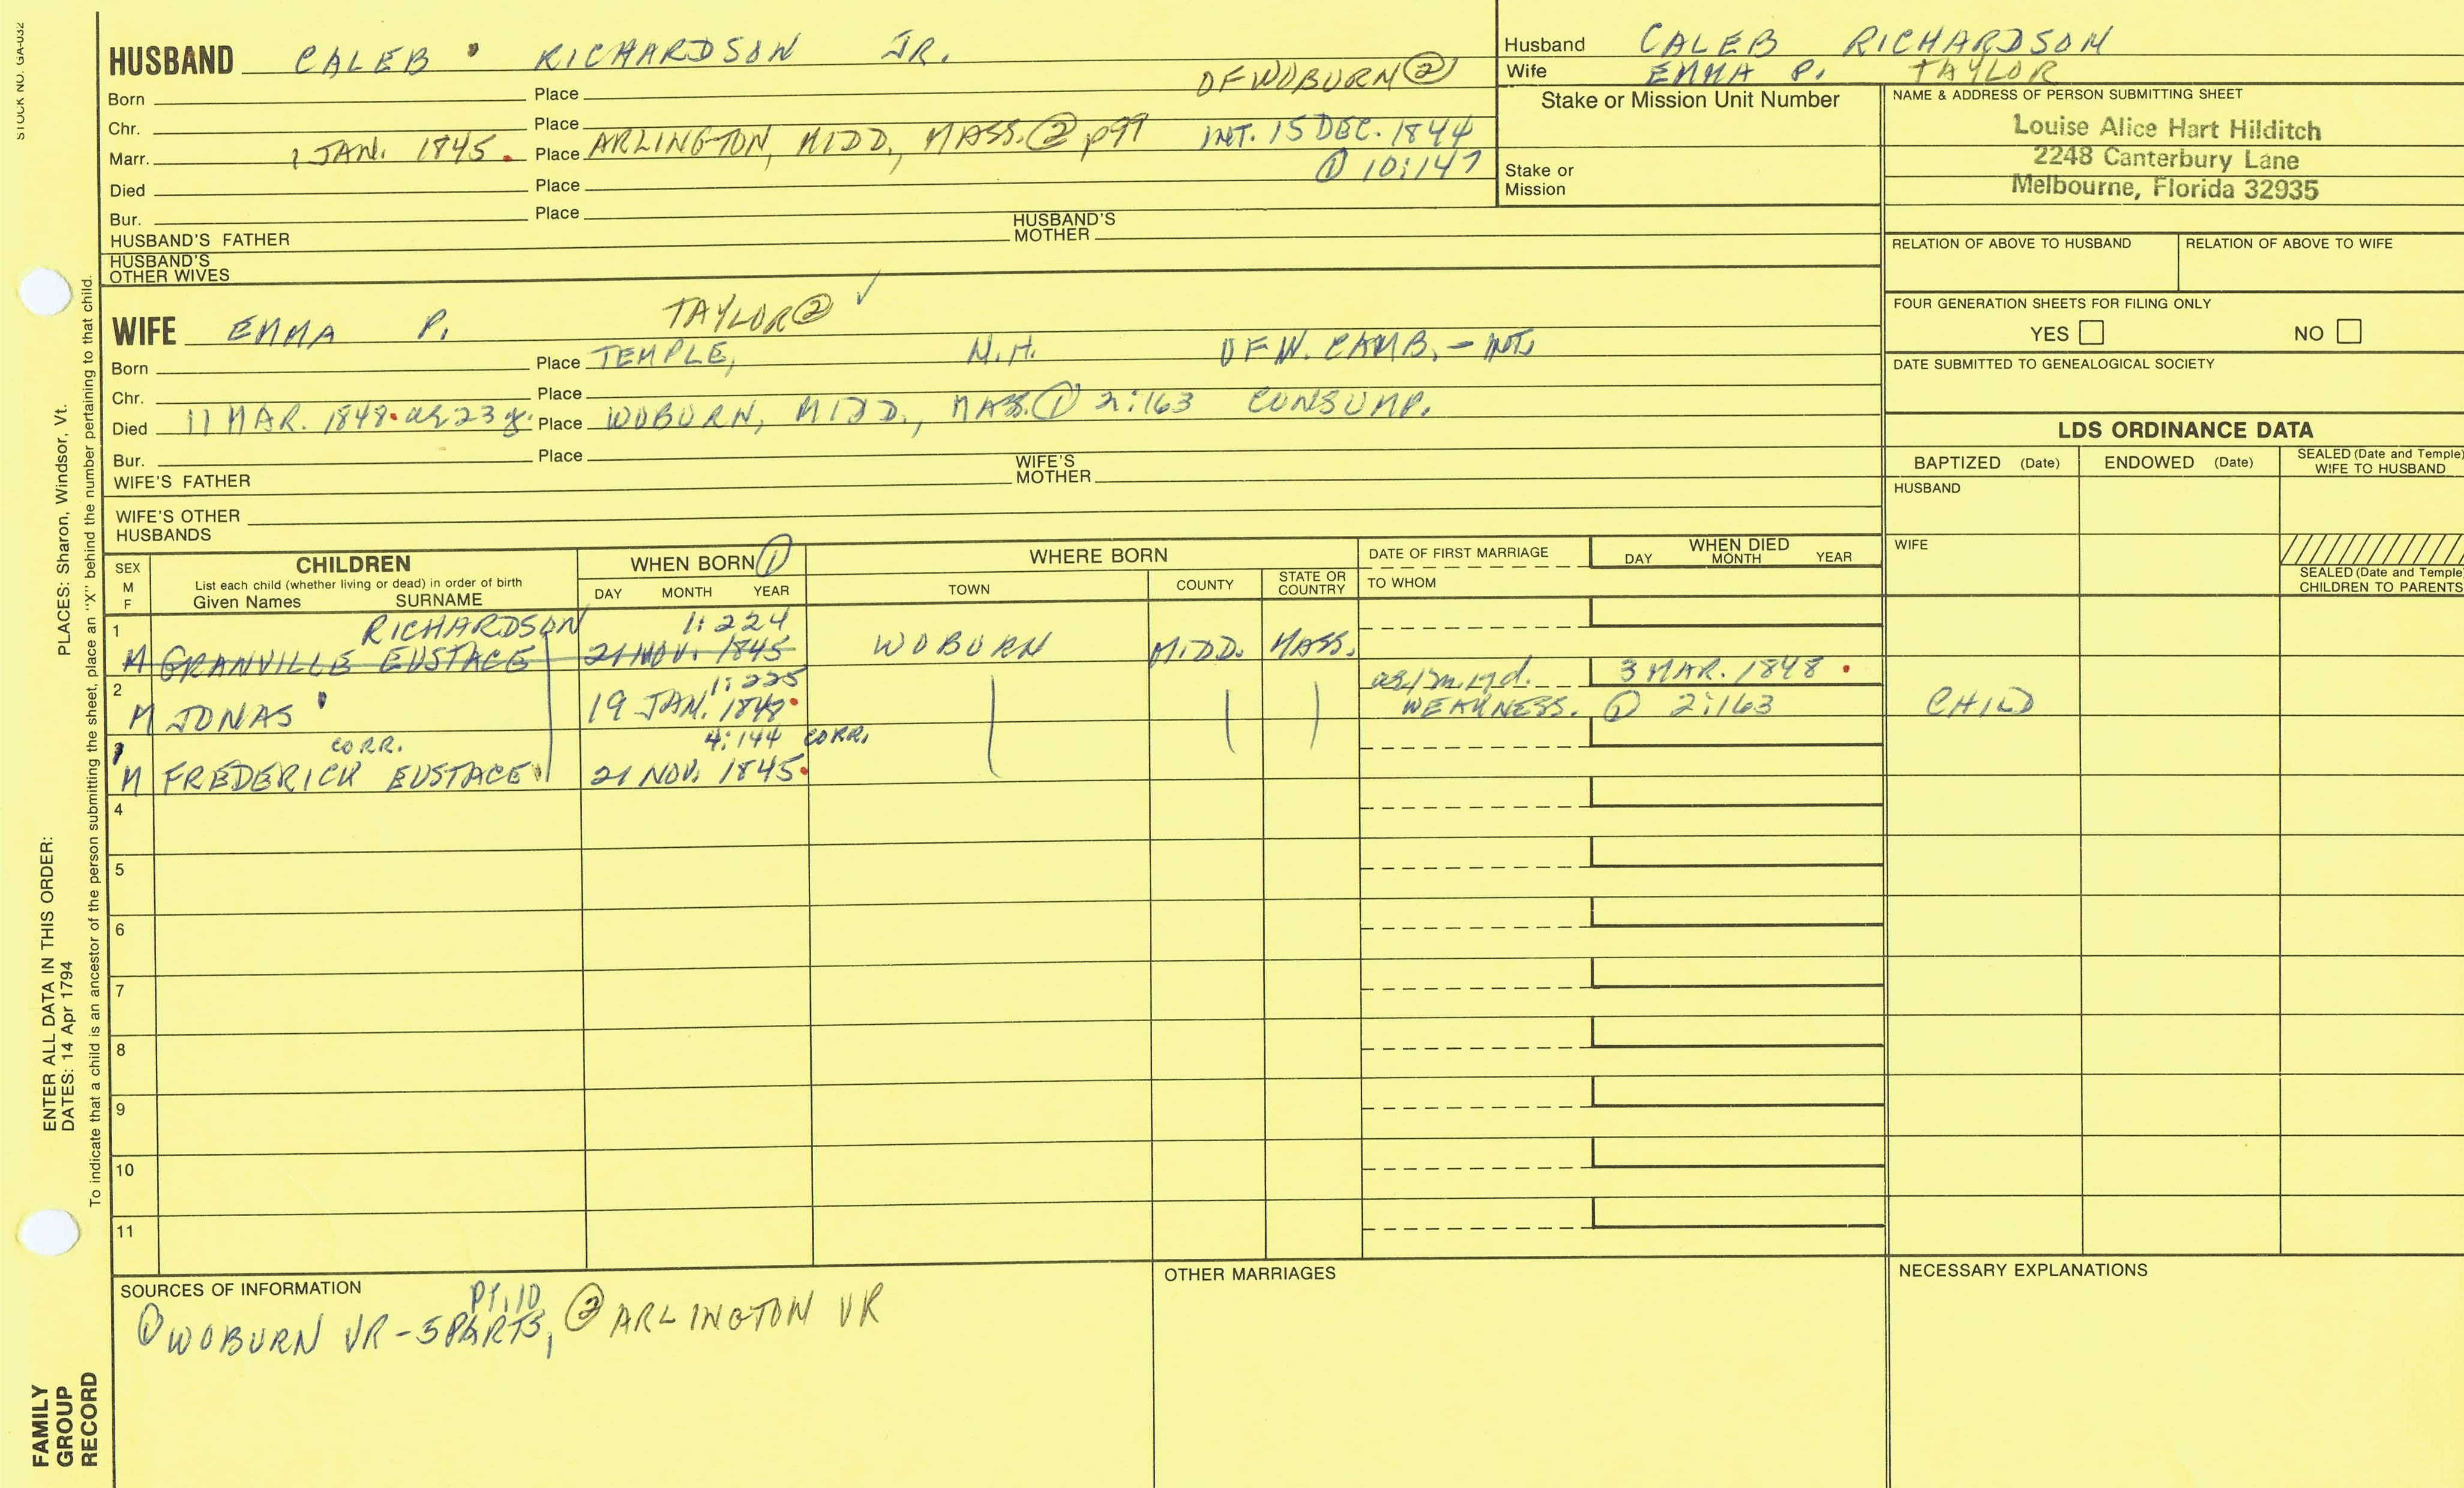 STOCK NO. GA-032
HUSBAND CALEB RICHARDSON JR.
OF WOBURN ②
Born Place
Chr. Place
Marr. 1 JAN. 1845. Place ARLINGTON, MIDD., MASS. ② p99 INT. 15 DEC. 1844
① 10:147
Died Place
Bur. Place
HUSBAND'S FATHER HUSBAND'S MOTHER
HUSBAND'S OTHER WIVES
Husband CALEB RICHARDSON
Wife EMMA P. TAYLOR
Stake or Mission Unit Number
Stake or Mission
NAME & ADDRESS OF PERSON SUBMITTING SHEET
Louise Alice Hart Hilditch
2248 Canterbury Lane
Melbourne, Florida 32935
RELATION OF ABOVE TO HUSBAND RELATION OF ABOVE TO WIFE
FOUR GENERATION SHEETS FOR FILING ONLY
YES NO
DATE SUBMITTED TO GENEALOGICAL SOCIETY
WIFE EMMA P. TAYLOR ② ✓
Born Place TEMPLE, N.H. OF W. CAMB. - INT.
Chr. Place
Died 11 MAR. 1848. ae 23 y. Place WOBURN, MIDD., MASS. ① 2:163 CONSUMP.
Bur. Place
WIFE'S FATHER WIFE'S MOTHER
WIFE'S OTHER HUSBANDS
LDS ORDINANCE DATA
BAPTIZED (Date) ENDOWED (Date) SEALED (Date and Temple) WIFE TO HUSBAND
HUSBAND
WIFE
SEALED (Date and Temple) CHILDREN TO PARENTS
SEX M F
CHILDREN
List each child (whether living or dead) in order of birth
Given Names SURNAME
WHEN BORN ①
DAY MONTH YEAR
WHERE BORN
TOWN COUNTY STATE OR COUNTRY
DATE OF FIRST MARRIAGE
TO WHOM
WHEN DIED
DAY MONTH YEAR
1 RICHARDSON 1:224
M GRANVILLE EUSTACE 21 NOV. 1845 WOBURN MIDD. MASS.
2 1:225 3 MAR. 1848.
M JONAS 19 JAN. WEAKNESS. ① 2:163 CHILD
CORR. 4:144 CORR.
M FREDERICK EUSTACE 21 NOV. 1845.
4
5
6
7
8
9
10
11
SOURCES OF INFORMATION
PT. 10
① WOBURN VR - 5 PARTS, ② ARLINGTON VR
OTHER MARRIAGES
NECESSARY EXPLANATIONS
FAMILY GROUP RECORD
ENTER ALL DATA IN THIS ORDER:
DATES: 14 Apr 1794
PLACES: Sharon, Windsor, Vt.
To indicate that a child is an ancestor of the person submitting the sheet, place an "X" behind the number pertaining to that child.